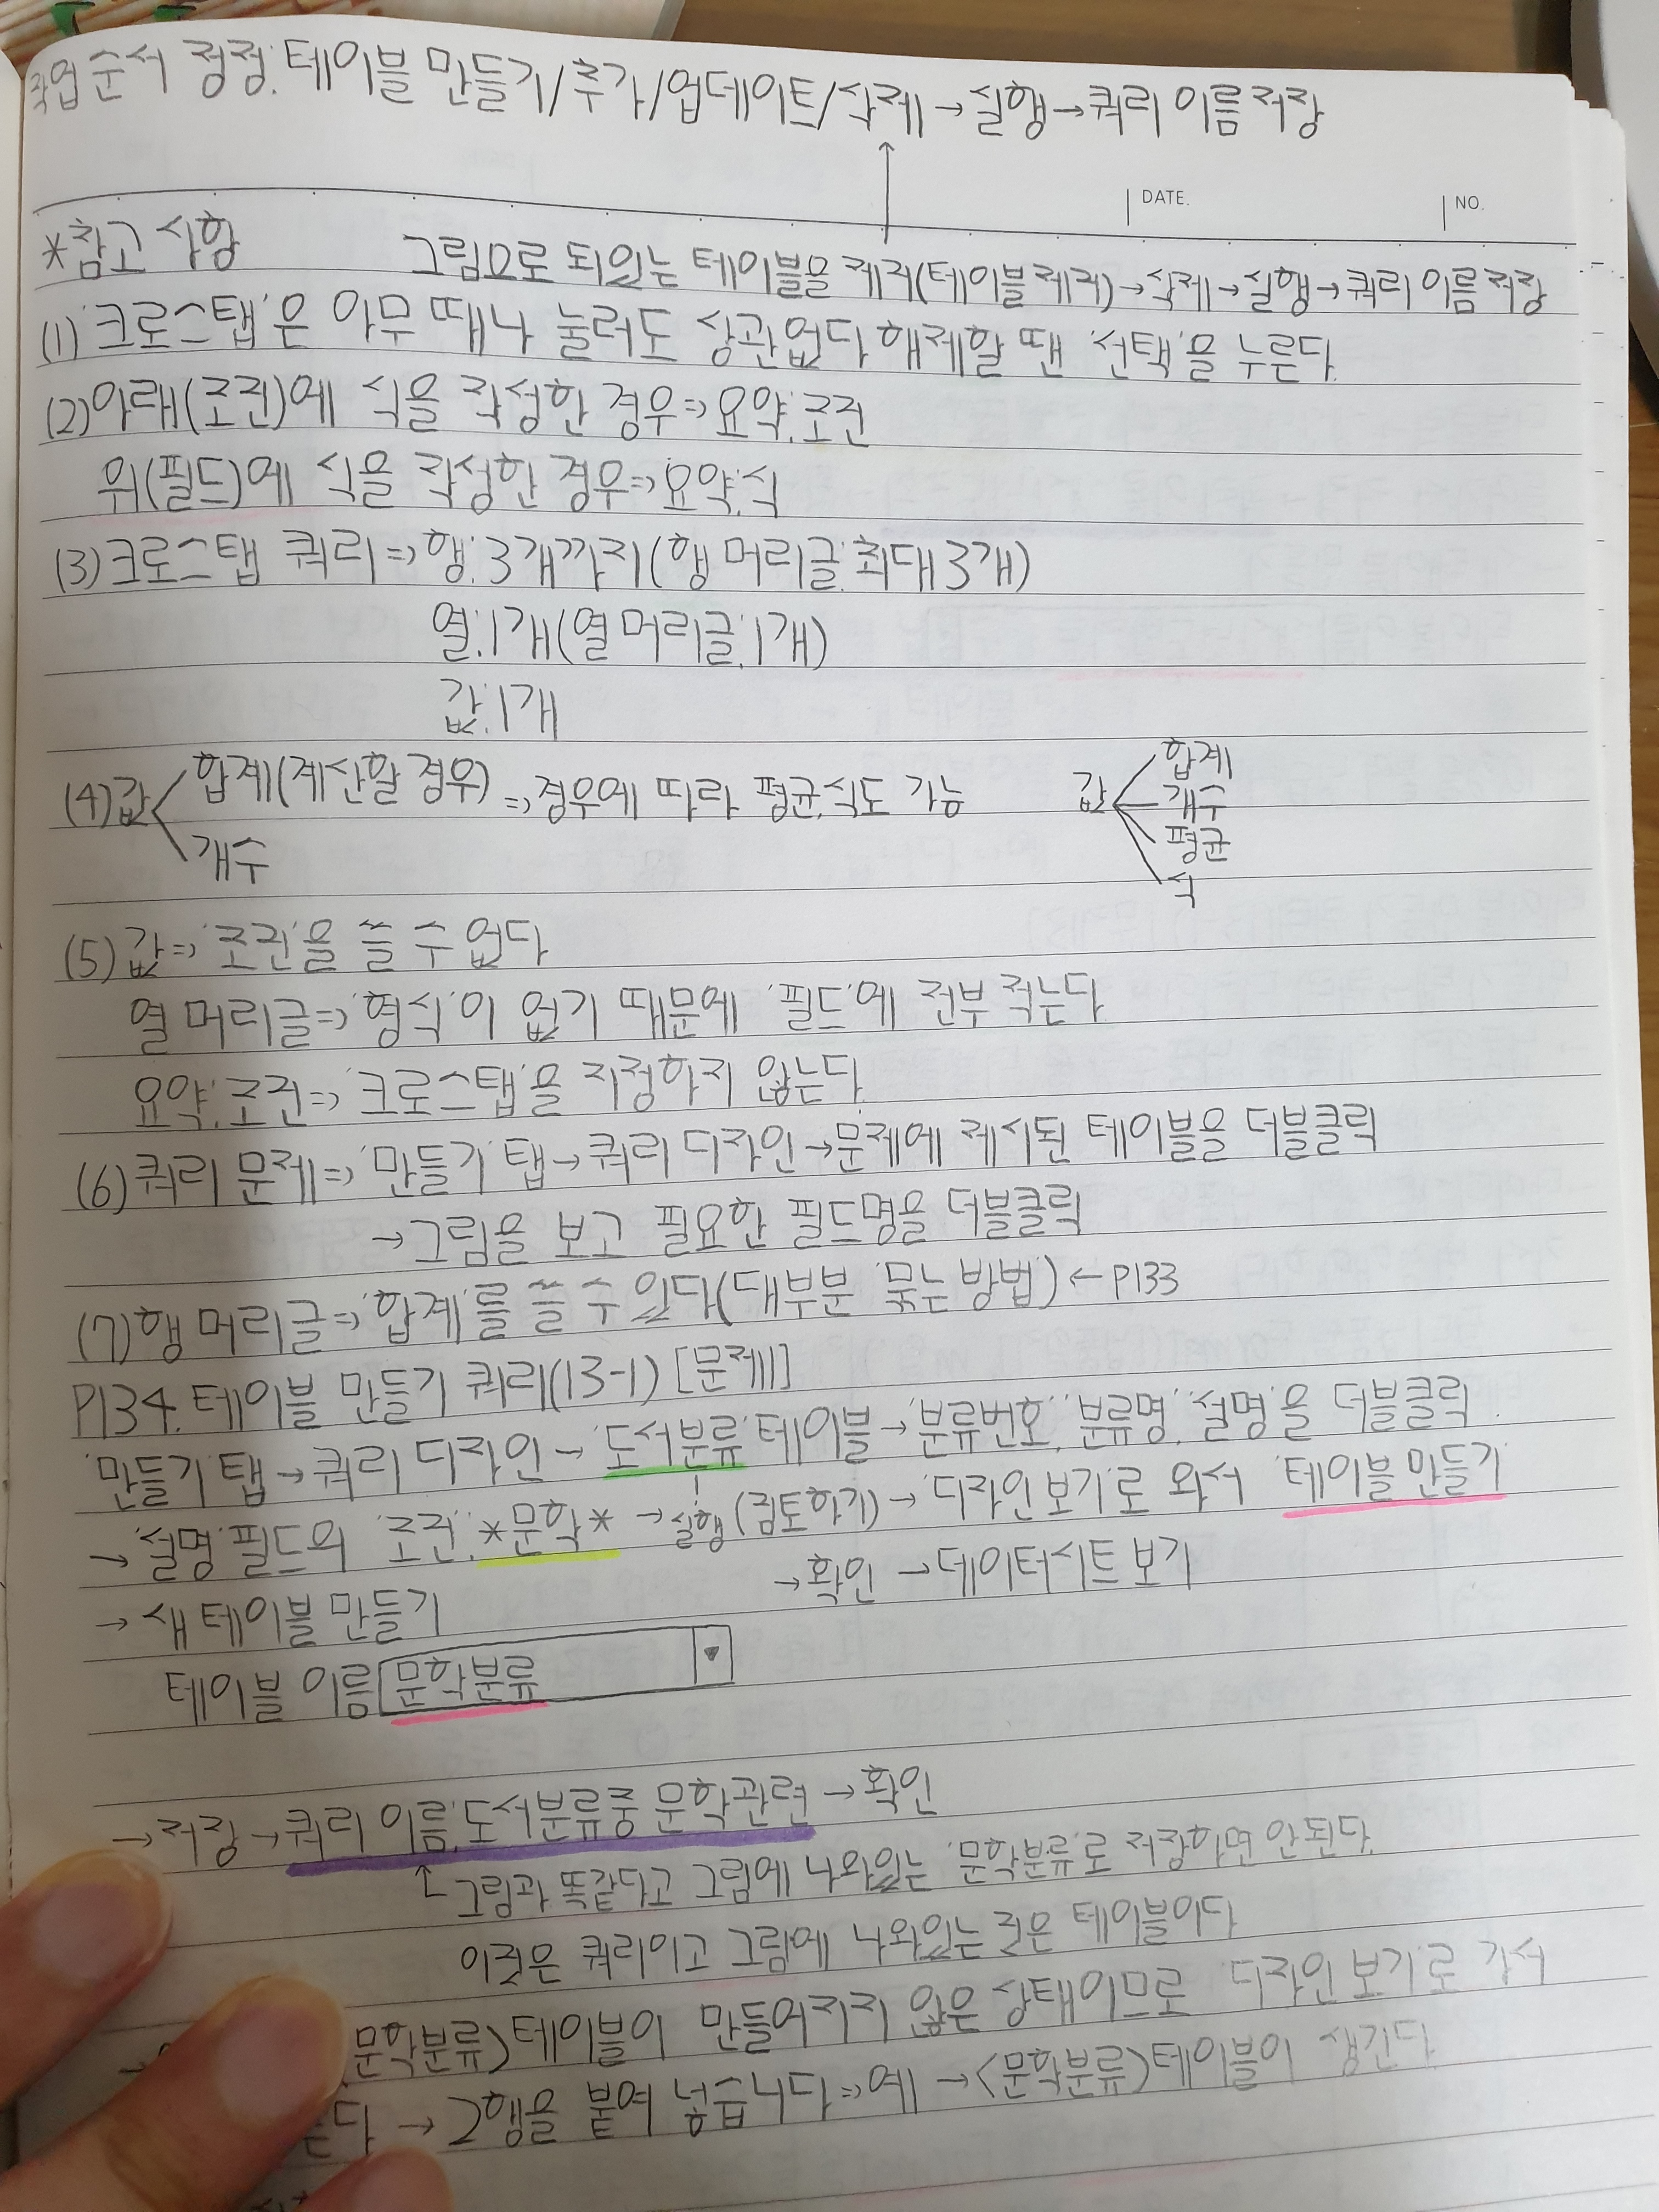 작업 순서 정정. 테이블 만들기/추가/업데이트/삭제→실행→쿼리 이름 저장
DATE.
NO.
*참고 사항
그림으로 되있는 테이블을 제거(테이블 제거)→삭제→실행→쿼리 이름 저장
(1) '크로스탭'은 아무 때나 눌러도 상관없다 해제할 땐 '선택'을 누른다.
(2) 아래(조건)에 식을 작성한 경우=>요약:조건
위(필드)에 식을 작성한 경우=>요약:식
(3) 크로스탭 쿼리=>행:3개까지(행 머리글:최대 3개)
열:1개(열 머리글:1개)
값:1개
(4) 값 합계(계산할 경우) =>경우에 따라 평균,식도 가능
개수
값 합계
개수
평균
식
(5) 값=>'조건'을 쓸 수 없다
열 머리글=>'형식'이 없기 때문에 '필드'에 전부 적는다
요약:조건=>'크로스탭'을 지정하지 않는다.
(6) 쿼리 문제=>'만들기'탭→쿼리 디자인→문제에 제시된 테이블을 더블클릭
→그림을 보고 필요한 필드명을 더블클릭
(7) 행 머리글=>'합계'를 쓸 수 있다(대부분 묶는 방법)←P133
P134. 테이블 만들기 쿼리(13-1) [문제1]
'만들기'탭→쿼리 디자인→도서분류 테이블→'분류번호','분류명','설명'을 더블클릭
→'설명'필드의 '조건':*문학*→실행(검토하기)→디자인 보기로 와서 테이블 만들기
→새 테이블 만들기
→확인→데이터시트 보기
테이블 이름 문학분류
→저장→쿼리 이름:도서분류중 문학관련→확인
그림과 똑같다고 그림에 나와있는 '문학분류'로 저장하면 안된다.
이것은 쿼리이고 그림에 나와있는 것은 테이블이다
문학분류>테이블이 만들어지지 않은 상태이므로 디자인 보기로 가서
→2행을 붙여 넣습니다=>예→<문학분류>테이블이 생긴다